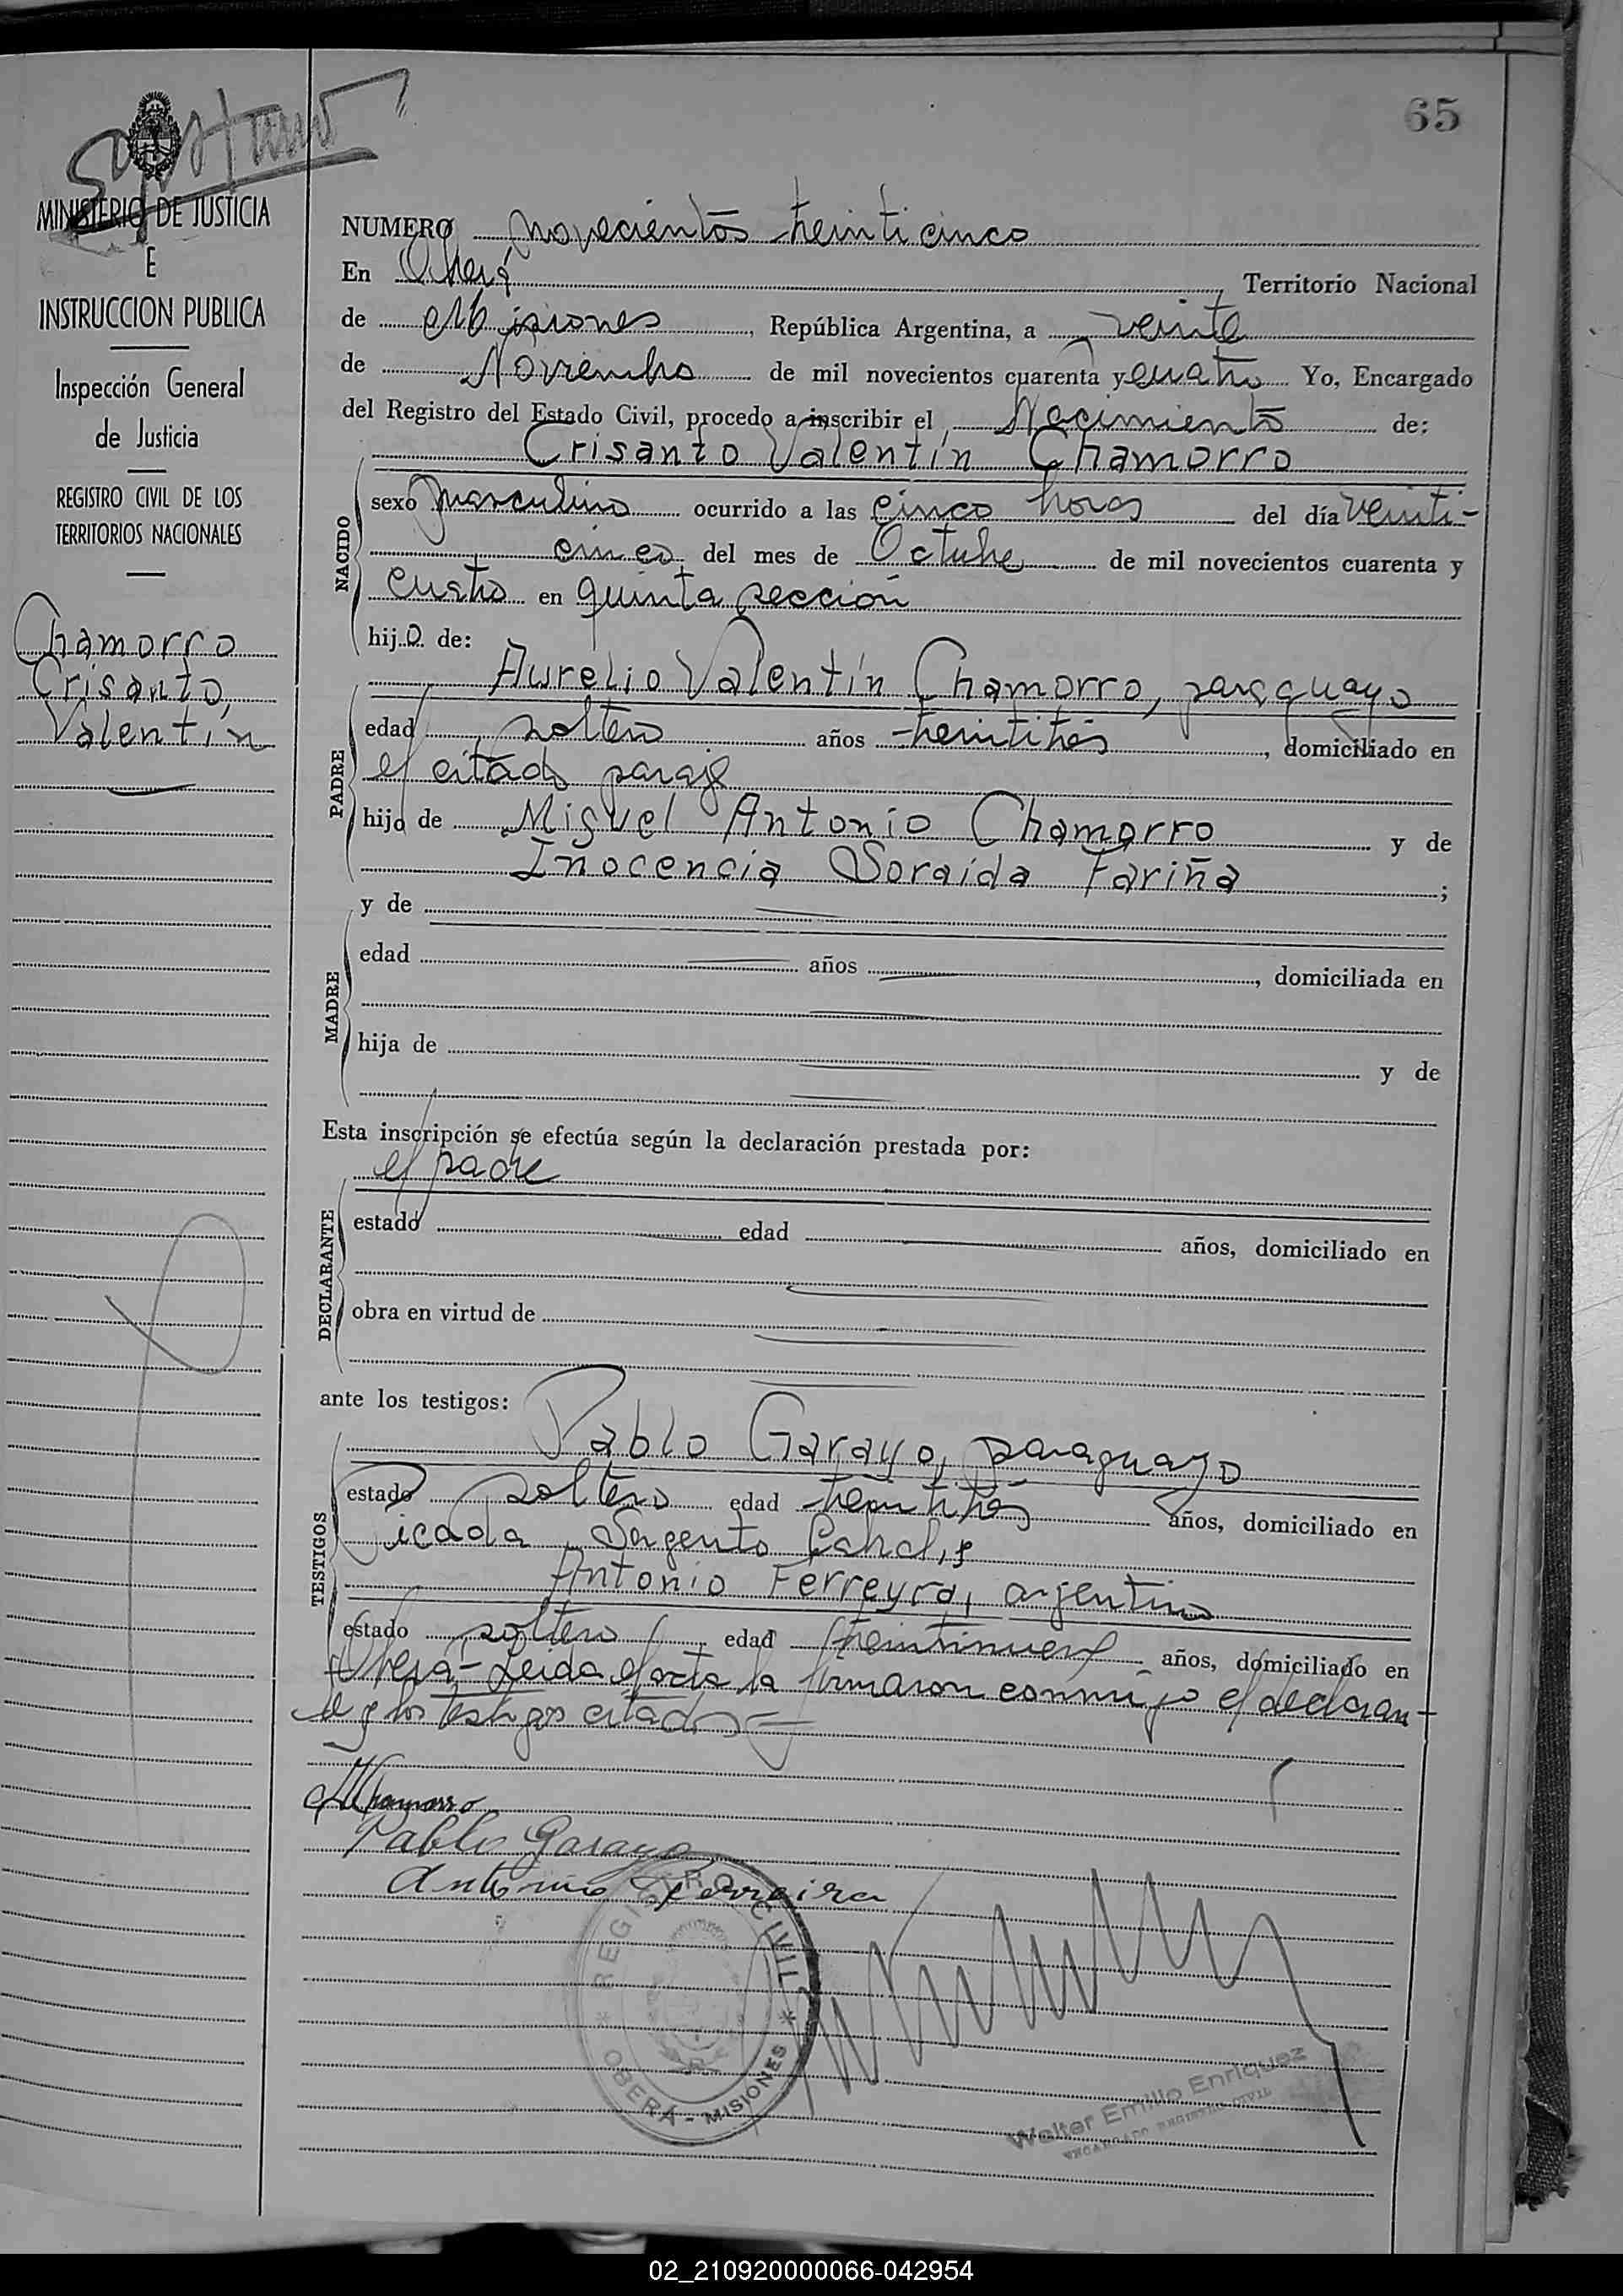 65
MINISTERIO DE JUSTICIA
E
INSTRUCCION PUBLICA
Inspección General
de Justicia
REGISTRO CIVIL DE LOS
TERRITORIOS NACIONALES
Chamorro
Crisanto,
Valentín
NUMERO novecientos treinticinco
En Oberá, Territorio Nacional
de Misiones, República Argentina, a veinte
de Noviembre de mil novecientos cuarenta y cuatro Yo, Encargado
del Registro del Estado Civil, procedo a inscribir el Nacimiento de:
Crisanto Valentín Chamorro
NACIDO
sexo masculino ocurrido a las cinco horas del día veinti-
cinco del mes de Octubre de mil novecientos cuarenta y
cuatro en quinta sección
hijo de:
Aurelio Valentín Chamorro, paraguayo
PADRE
edad soltero años treintitrés, domiciliado en
el citado paraje
hijo de Miguel Antonio Chamorro y de
Inocencia Soraida Fariña;
MADRE
y de
edad años, domiciliada en
hija de y de
Esta inscripción se efectúa según la declaración prestada por:
el padre
DECLARANTE
estado edad años, domiciliado en
obra en virtud de
ante los testigos:
Pablo Garayo, paraguayo
TESTIGOS
estado soltero edad treintitrés años, domiciliado en
Picada Sargento Cabral, y
Antonio Ferreyra, argentino
estado soltero edad treintinueve años, domiciliado en
Oberá - Leida el acta la firmaron conmigo el declaran-
te y los testigos citados
Chamorro
Pablo Garayo
Antonio Ferreira
REGISTRO CIVIL
OBERÁ - MISIONES
Walter Emilio Enriquez
ENCARGADO REGISTRO CIVIL
02_210920000066-042954